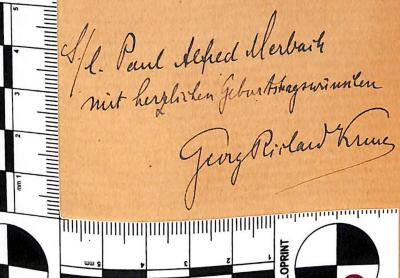 S/l. Paul Alfred Merbach
mit herzlichen Geburtstagswünschen
Georg Richard Kruse
5
4
3
2
mm 1
5 mm
4
3
2
1
LOPRINT